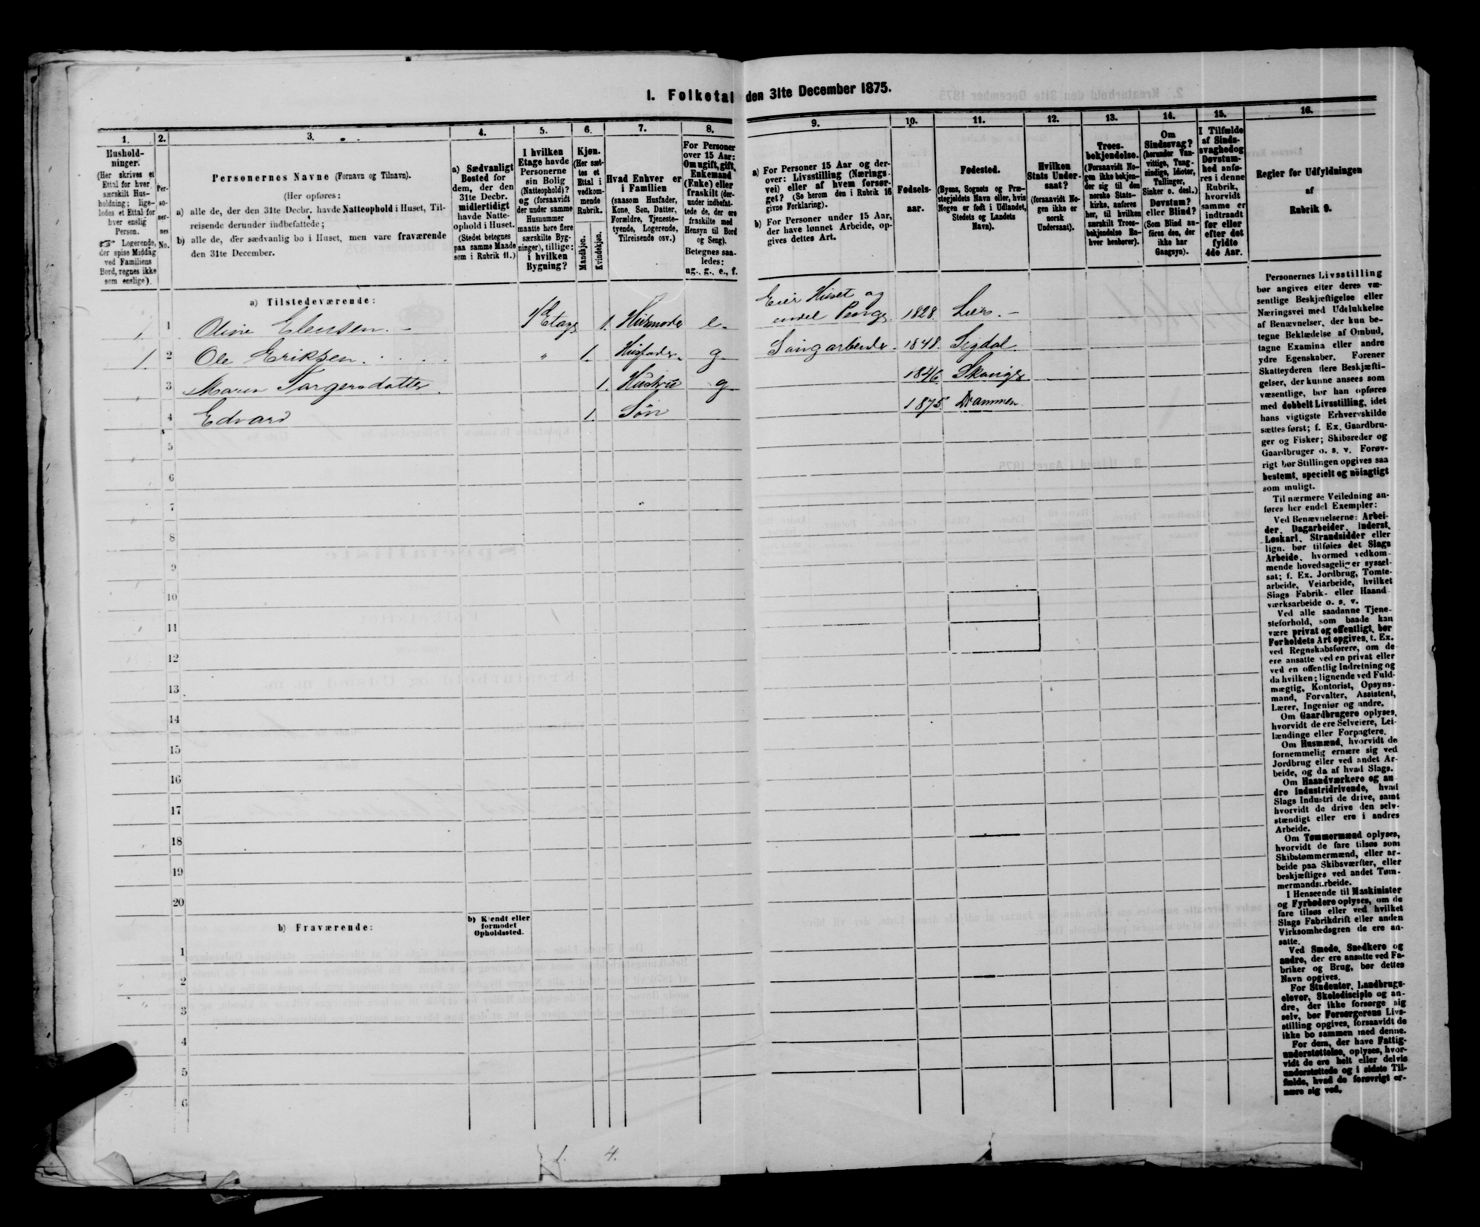 1. Folketal den 31te December 1875.
1.
Hushold-
ninger.
(Her skrives et
Ettal for hver
særskilt Hus-
holdning; lige-
ledes et Ettal for
hver enslig
Person.
Logerende,
der spise Middag
ved Familiens
Bord, regnes ikke
som enslige).
2.
Per-
so-
ner-
nes
No.
3.
Personernes Navne (Fornavn og Tilnavn).
(Her opføres:
a) alle de, der den 31te Decbr. havde Natteophold i Huset, Til-
reisende derunder indbefattede;
b) alle de, der sædvanlig bo i Huset, men vare fraværende
den 31te December.
4.
a) Sædvanligt
Bosted for
dem, der den
31te Decbr.
midlertidigt
havde Natte-
ophold i Huset.
(Stedet betegnes
paa samme Maade
som i Rubrik 11.)
5.
I hvilken
Etage havde
Personerne
sin Bolig
(Natteophold)?
og (forsaavidt
der under samme
Husnummer
maatte høre flere
særskilte Byg-
ninger), tillige:
i hvilken
Bygning?
6.
Kjøn.
(Her sæt-
tes et
Ettal i
vedkom-
mende
Rubrik.
Mandkjøn.
Kvindekjøn.
7.
Hvad Enhver er
i Familien
(saasom Husfader,
Kone, Søn, Datter,
Forældre, Tjeneste-
tyende, Logerende,
Tilreisende osv.)
8.
For Personer
over 15 Aar:
Om ugift, gift,
Enkemand
(Enke) eller
fraskilt (der-
under indbefat-
tede de, der ere
fraskilte med
Hensyn til Bord
og Seng).
Betegnes saa-
ledes:
ug., g., e., f.
9.
a) For Personer 15 Aar og der-
over: Livsstilling (Nærings-
vei) eller af hvem forsør-
get? (Se herom den i Rubrik 16
givne Forklaring).
b) For Personer under 15 Aar,
der have lønnet Arbeide, op-
gives dettes Art.
10.
Fødsels-
aar.
11.
Fødested.
(Byens, Sognets og Præ-
stegjeldets Navn eller, hvis
Nogen er født i Udlandet,
Stedets og Landets
Navn).
12.
Hvilken
Stats Under-
saat?
(forsaavidt No-
gen ikke er
norsk
Undersaat).
13.
Troes-
bekjendelse.
(Forsaavidt No-
gen ikke bekjen-
der sig til den
norske Stats-
kirke, anføres
her, til hvilken
særskilt Troes-
bekjendelse En-
hver henhører).
14.
Om
Sindssvag?
(herunder Van-
vittige, Tung-
sindige, Idioter,
Tullinger,
Sinker o. desl.)
Døvstum?
eller Blind?
(Som Blind an-
føres den, der
ikke har
Gangsyn).
15.
I Tilfælde
af Sinds-
svaghed og
Døvstum-
hed anfø-
res i denne
Rubrik,
hvorvidt
samme er
indtraadt
før eller
efter det
fyldte
4de Aar.
16.
Regler for Udfyldningen
af
Rubrik 9.
a) Tilstedeværende:
1. 1 Oline Elensen. 1ste Etage 1. Husmoder e. Eier Huset og endel Penge 1828 Liers.
1. 2 Ole Eriksen. " 1. Husfader. g. Saugarbeider. 1848. Sigdal.
3 Maren Torgersdatter 1. Hustru g 1846 Skouger
4 Edvard 1. Søn 1875 Drammen
5
6
7
8
9
10
11
12
13
14
15
16
17
18
19
20
b) Fraværende:
b) Kjendt eller
formodet
Opholdssted.
1
2
3
4
5
6
1. 4.
Personernes Livsstilling
bør angives efter deres væ-
sentlige Beskjæftigelse eller
Næringsvei med Udelukkelse
af Benævnelser, der kun be-
tegne Beklædelse af Ombud,
tagne Examina eller andre
ydre Egenskaber. Forener
Skatteyderen flere Beskjæfti-
gelser, der kunne ansees som
væsentlige, bør han opføres
med dobbelt Livsstilling, idet
hans vigtigste Erhvervskilde
sættes først; f. Ex. Gaardbru-
ger og Fisker; Skibsreder og
Gaardbruger o. s. v. Forøv-
rigt bør Stillingen opgives saa
bestemt, specielt og nøiagtigt
som muligt.
Til nærmere Veiledning an-
føres her endel Exempler:
Ved Benævnelserne: Arbei-
der, Dagarbeider, Inderst,
Løskarl, Strandsidder eller
lign. bør tilføies det Slags
Arbeide, hvormed vedkom-
mende hovedsagelig er syssel-
sat; f. Ex. Jordbrug, Tomte-
arbeide, Veiarbeide, hvilket
Slags Fabrik- eller Haand-
værksarbeide o. s. v.
Ved alle saadanne Tjene-
steforhold, som baade kan
være privat og offentligt, bør
Forholdets Art opgives, t. Ex.
ved Regnskabsførere, om de
ere ansatte ved en privat eller
ved en offentlig Indretning og
da hvilken; lignende ved Fuld-
mægtig, Kontorist, Opsyns-
mand, Forvalter, Assistent,
Lærer, Ingeniør og andre.
Om Gaardbrugere oplyses,
hvorvidt de ere Selveiere, Lei-
lændinge eller Forpagtere.
Om Husmænd, hvorvidt de
fornemmelig ernære sig ved
Jordbrug eller ved andet Ar-
beide, og da af hvad Slags.
Om Haandværkere og an-
dre Industridrivende, hvad
Slags Industri de drive, samt
hvorvidt de drive den selv-
stændigt eller ere i andres
Arbeide.
Om Tømmermænd oplyses,
hvorvidt de fare tilsøs som
Skibstømmermænd, eller ar-
beide paa Skibsværfter, eller
beskjæftiges ved andet Tøm-
mermandsarbeide.
I Henseende til Maskinister
og Fyrbødere oplyses, om de
fare tilsøs eller ved hvilket
Slags Fabrikdrift eller anden
Virksomhedsgren de ere an-
satte.
Ved Smede, Snedkere og
andre, der ere ansatte ved Fa-
briker og Brug, bør dettes
Navn opgives.
For Studenter, Landbrugs-
elever, Skoledisciple og an-
dre, der ikke forsørge sig
selv, bør Forsørgerens Livs-
stilling opgives, forsaavidt de
ikke bo sammen med denne.
For dem, der have Fattig-
understøttelse, oplyses, hvor-
vidt de ere helt eller delvis
understøttede og i sidste Til-
fælde, hvad de forøvrigt er-
nære sig ved.